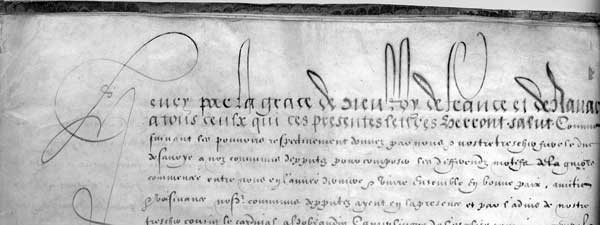 Henry par la grace de dieu Roy de france et de Navar
a tous ceulx qui ces presentes lettres verront salut Comme
suivant les pouvoirs respectivement donnez par nous nostre treschr frere le duc
de savoye a noz commis depputez pour composer les differendz de la guerre
commencee entre nous en l'annee vivre ensemble en bonne paix, amitie
voisinance nosd. commis depputez ayent en la presence et par l'advis de nostre
treschr cousin le cardinal aldobrandin